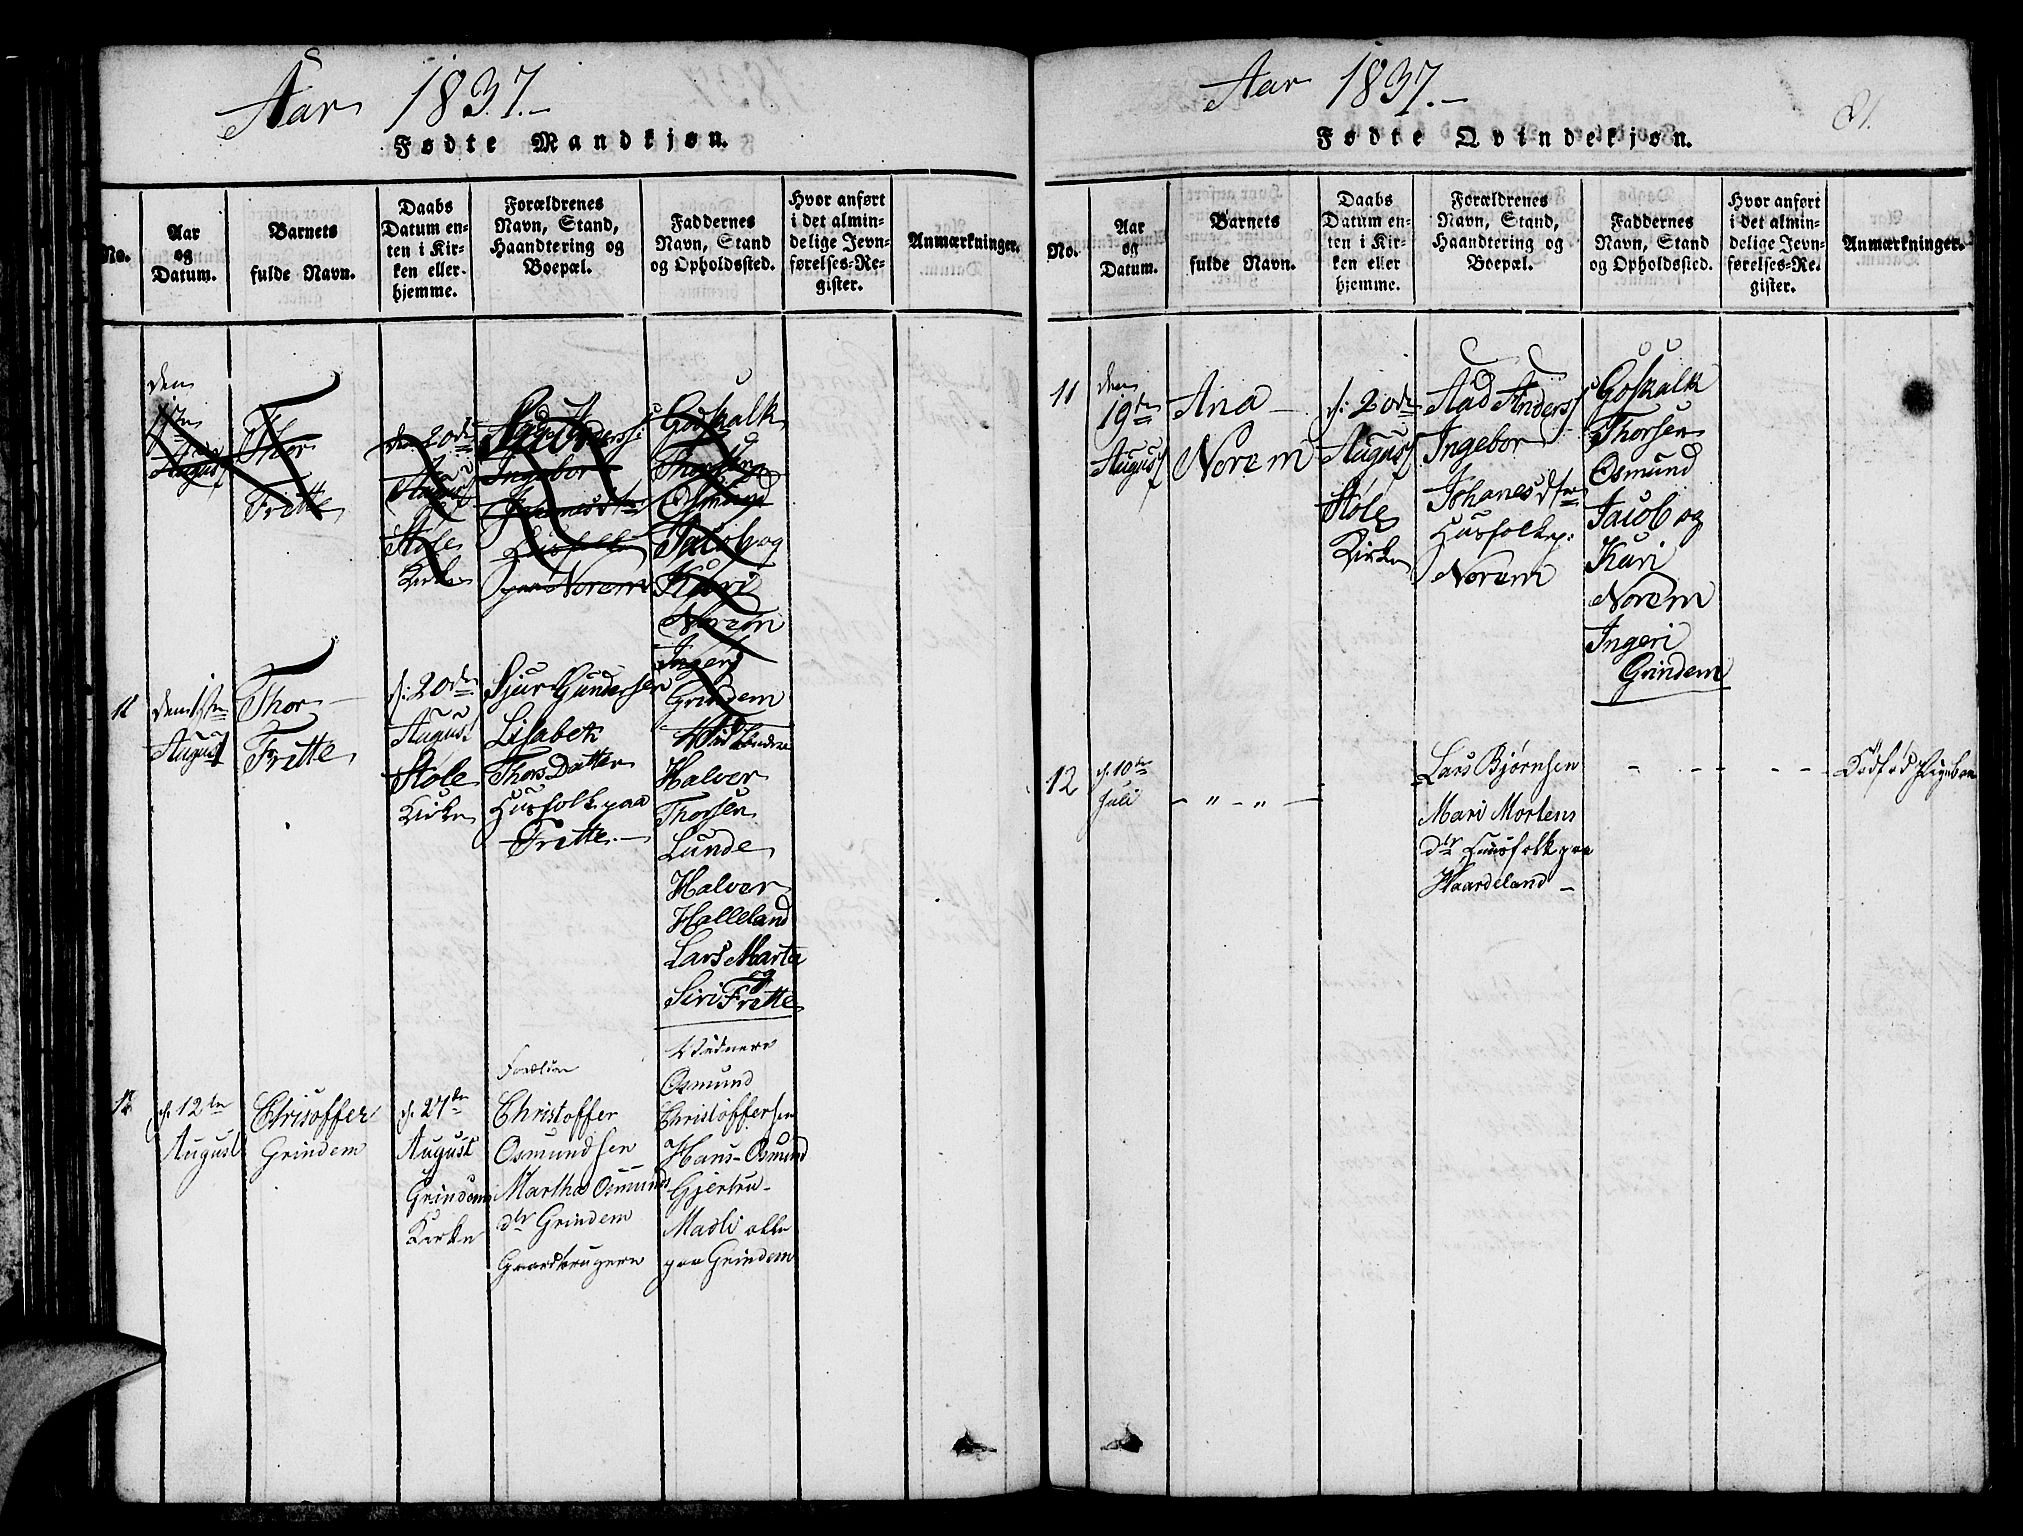 Aar 1837.-
Fødte Mandkjøn.
No.
Aar
og
Datum.
Barnets
fulde Navn.
Daabs
Datum en-
ten i Kir-
ken eller
hjemme.
Forældrenes
Navn, Stand,
Haandtering og
Boepæl.
Faddernes
Navn, Stand
og Opholdssted.
Hvor anført
i det almin-
delige Jevn-
førelses-Re-
gister.
Anmærkninger.
den
August
Thor
Fritte
den 20de
August
Støle
Kirke
Ingebor
Husfolk
paa Norem
Goskalk
Osmund
Jacob og
Kari
Norem
Ingeri
Grindem
11
August
Thor -
Fritte
d: 20de
August
Støle
Kirke
Sjur Gundersen
Lisabek
Thors Datter
Husfolk paa
Fritte. -
Halver
Thorsen
Lunde
Halver
Halleland
Lars Marta
og
Siri Fritte
12
d. 12te
August
Chrisoffer
Grindem
d. 27de
August
Grindem
Kirke
Christoffer
Osmundsen
Martha Osmunds
dtr Grindem
Gaardbrugere
Osmund
Christoffersen
Hans - Osmund
Gjertru -
Madli alle
paa Grindem
Aar 1837.-
81.
Fødte Qvindekjøn.
No.
Aar
og
Datum.
Barnets
fulde Navn.
Daabs
Datum en-
ten i Kir-
ken eller
hjemme.
Forældrenes
Navn, Stand,
Haandtering og
Boepæl.
Faddernes
Navn, Stand
og Opholdssted.
Hvor anført
i det almin-
delige Jevn-
førelses-Re-
gister.
Anmærkninger.
11
den
19de
August
Ana -
Norem
d: 20de
August
Støle
Kirke
Aad Anders
Ingebor
Johanesdtr
Husfolk p:
Norem
Goskalk
Thorsen
Osmund
Jacob og
Kari
Norem
Ingeri
Grindem
12
d. 10de
Juli
- " - " -
Lars Bjørnsen
Mari Mortens
dtr Huusfolk paa
Haardeland -
- - - -
Dødfød Pigebarn